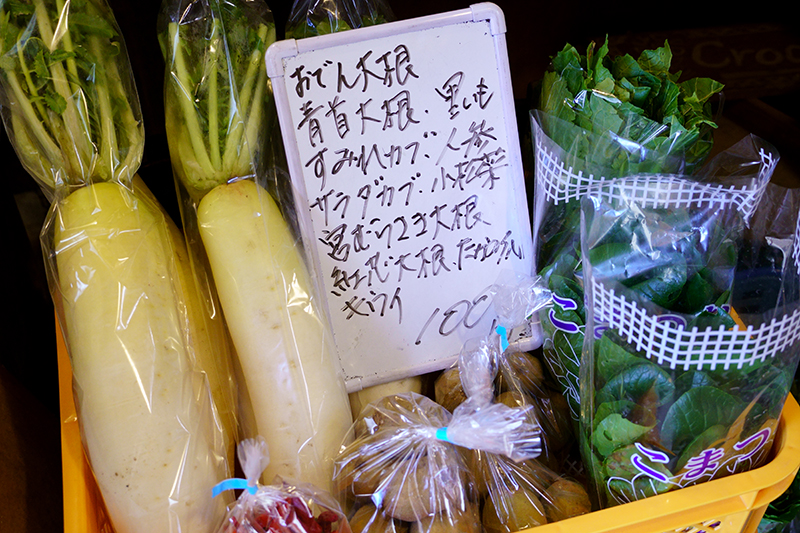 おでん大根
青首大根、里いも
すみれカブ、人参
サラダカブ、小松菜
宮むらさき大根
紅花大根
キウイ
100
こまつ
Croc